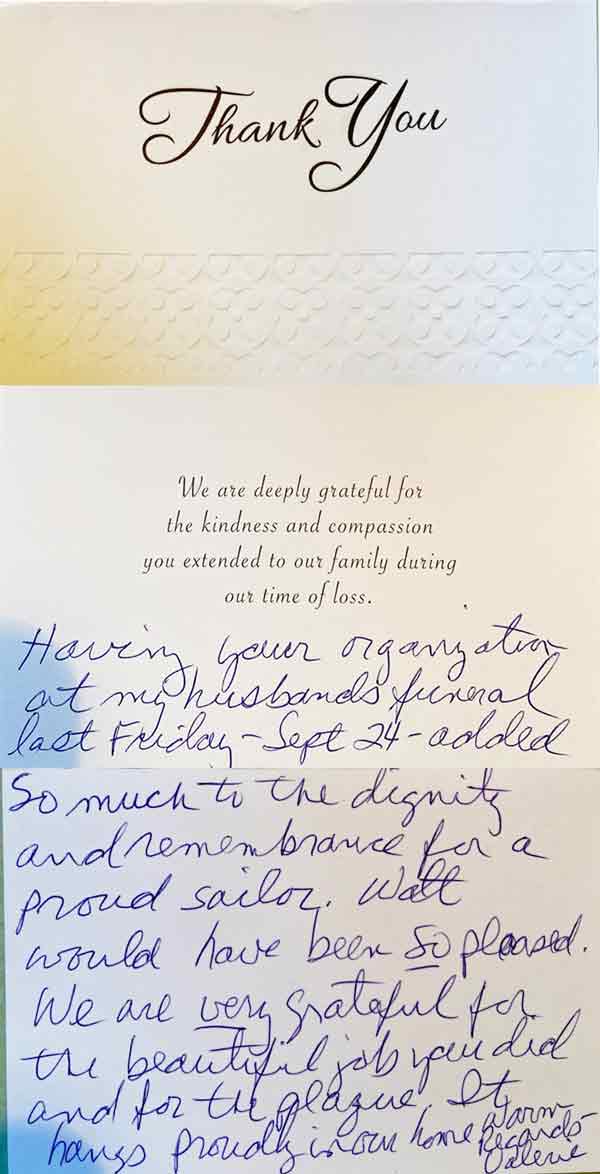 Thank You
We are deeply grateful for
the kindness and compassion
you extended to our family during
our time of loss.
Having your organization
at my husbands funeral
last Friday - Sept 24 - added
So much to the dignity
and remembrance for a
proud sailor. Walt
would have been So pleased.
We are very grateful for
the beautiful job you did
and for the plaque. It
hangs proudly in our home
Warm
Regards -
Valerie